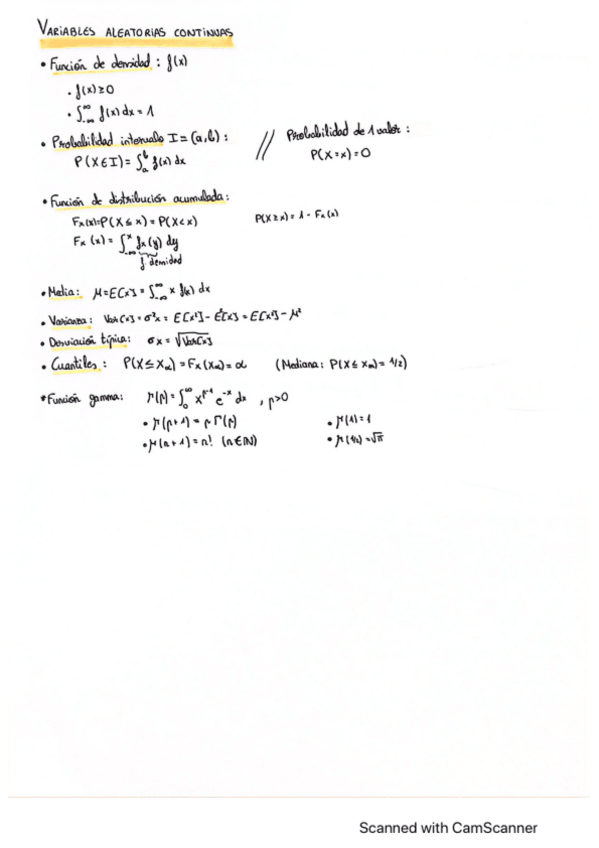 VARIABLES ALEATORIAS CONTINUAS
• Función de densidad : f(x)
• f(x) ≥ 0
• ∫_{-∞}^{∞} f(x) dx = 1
• Probabilidad intervalo I = (a, b) :
P(X ∈ I) = ∫_a^b f(x) dx
// Probabilidad de 1 valor :
P(X = x) = 0
• Función de distribución acumulada :
Fx(x) = P(X ≤ x) = P(X < x)
P(X ≥ x) = 1 - Fx(x)
Fx (x) = ∫_{-∞}^x fx(y) dy
f densidad
• Media : μ = E[x] = ∫_{-∞}^{∞} x f(x) dx
• Varianza : Var[x] = σ²x = E[x²] - E²[x] = E[x²] - μ²
• Desviación típica : σx = √Var[x]
• Cuantiles : P(X ≤ xα) = Fx(xα) = α (Mediana : P(X ≤ xm) = 1/2)
* Función gamma : Γ(p) = ∫_0^∞ x^{p-1} e^{-x} dx , p > 0
• Γ(p+1) = p Γ(p)
• Γ(1) = 1
• Γ(n+1) = n! (n ∈ ℕ)
• Γ(1/2) = √π
Scanned with CamScanner